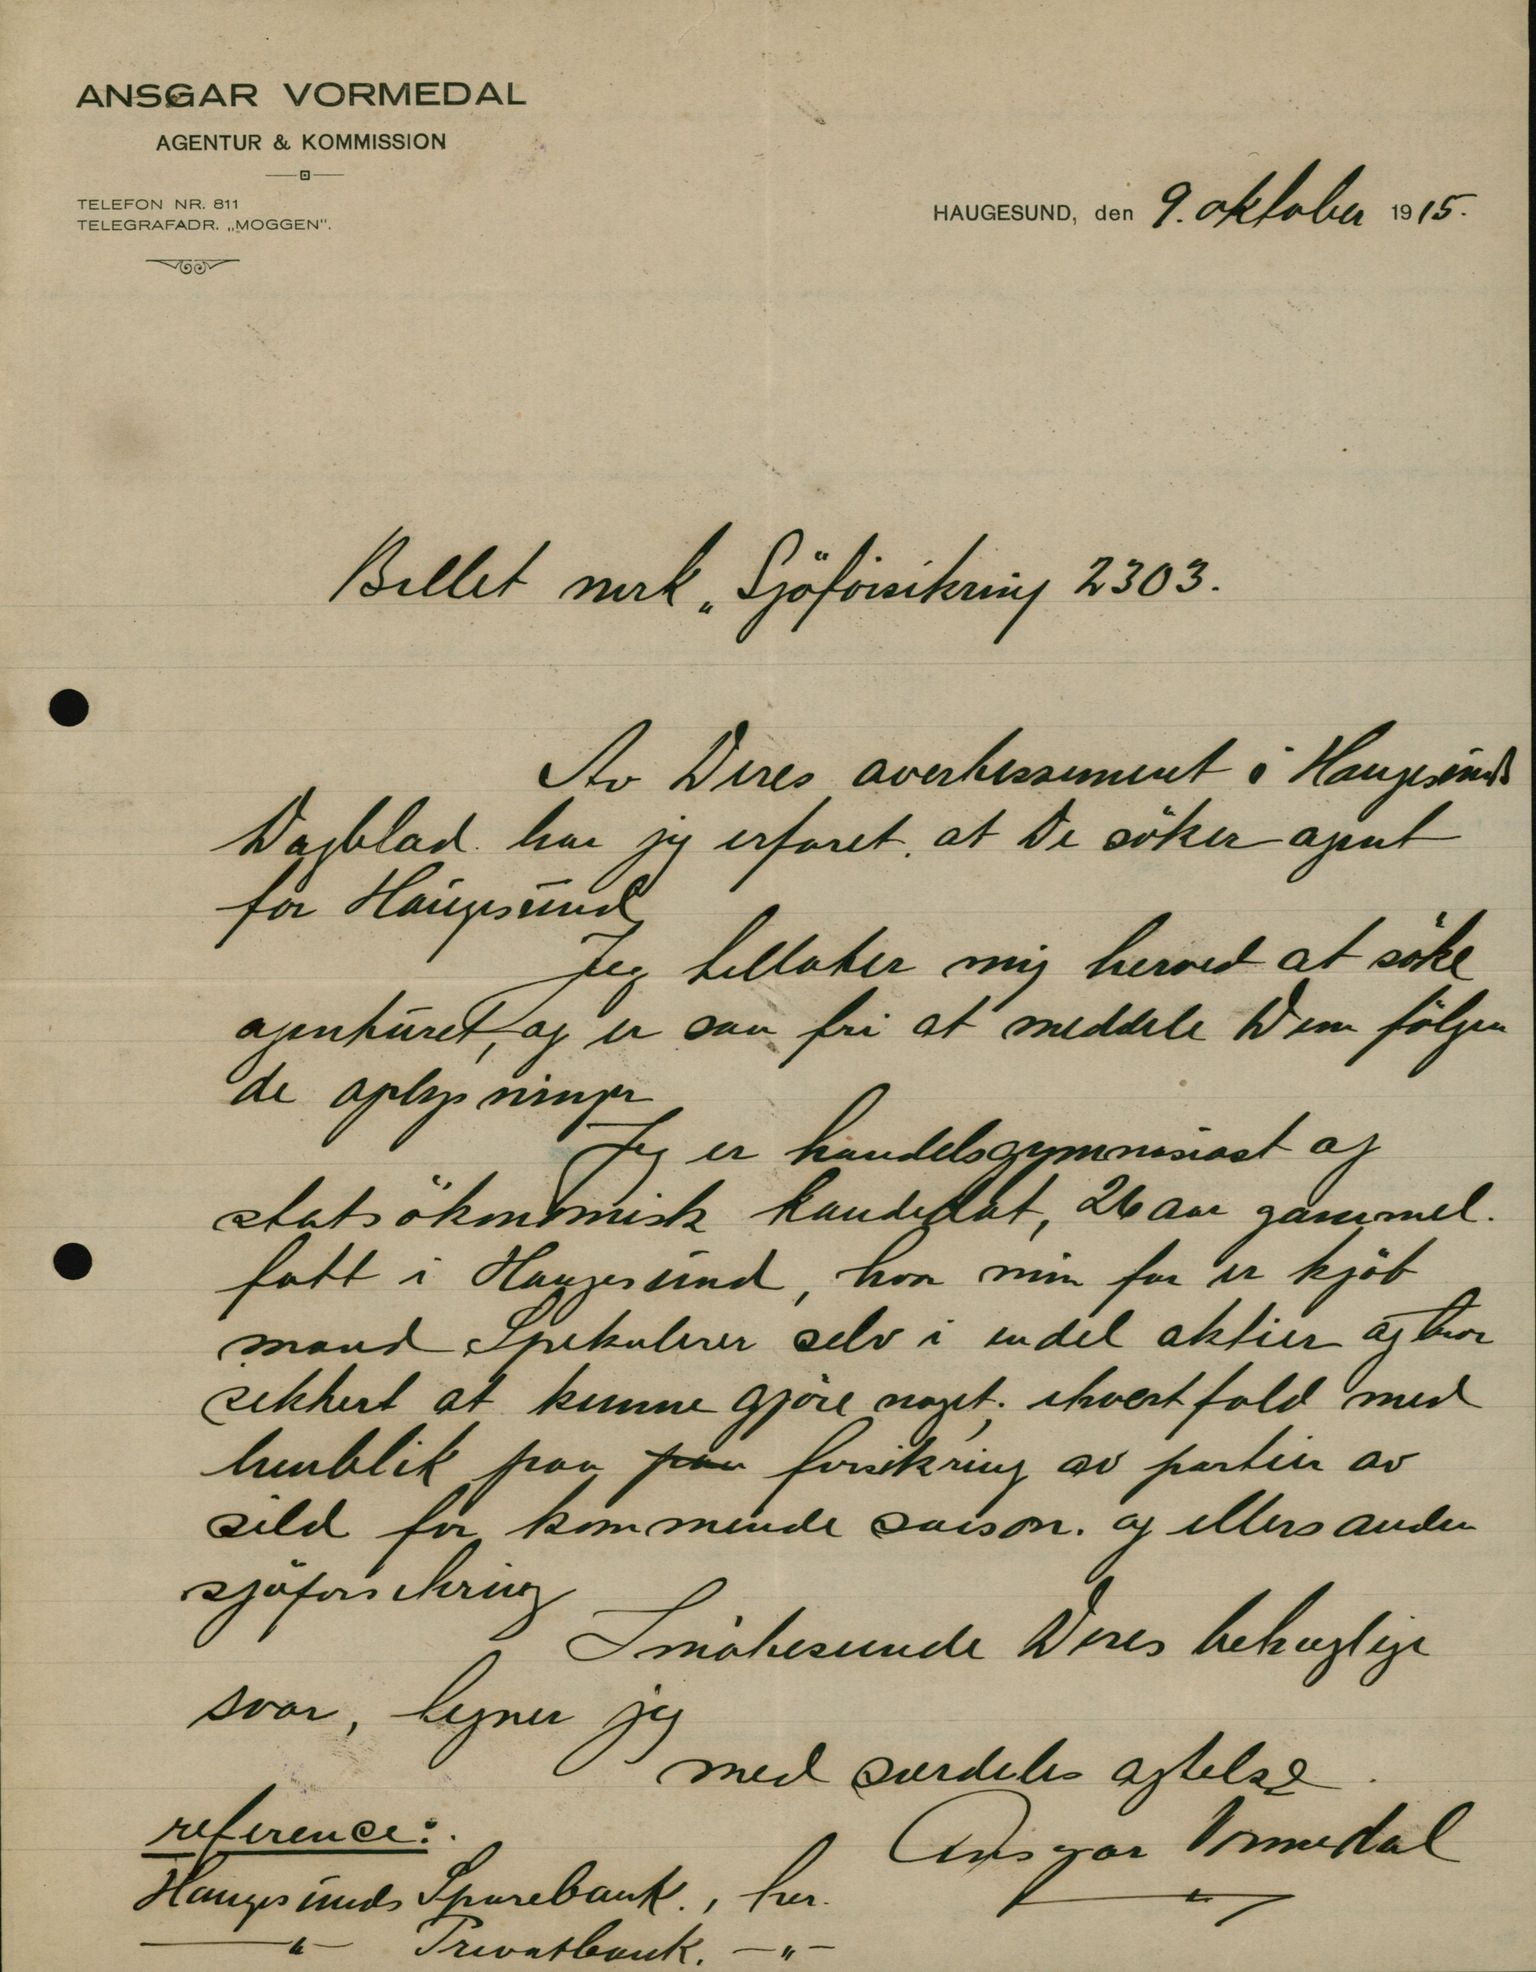 ANSGAR VORMEDAL
AGENTUR & KOMMISSION
TELEFON NR. 811
TELEGRAFADR. „MOGGEN".
HAUGESUND, den 9. oktober 1915.
Billet mrk „Sjöforsikring 2303.
Av Deres avertissement i Haugesunds
Dagblad har jeg erfaret at De söker agent
for Haugesund
Jeg tillater mig herved at söke
agenturet, og er saa fri at meddele Dem fölgen
de oplysninger
Jeg er handelsgymnasiast og
statsökonomisk kandidat, 26 aar gammel.
fött i Haugesund, hvor min far er kjöb
mand Spekulerer selv i endel aktier og tror
sikkert at kunne gjöre noget, ihvertfald med
henblik paa paa forsikring av partier av
sild for kommende saison. og ellers anden
sjöforsikring
Imötesende Deres behagelige
svar, tegner jeg
med særdeles agtelse.
Ansgar Vormedal
reference:
Haugesunds Sparebank., her.
—"— Privatbank. —"—